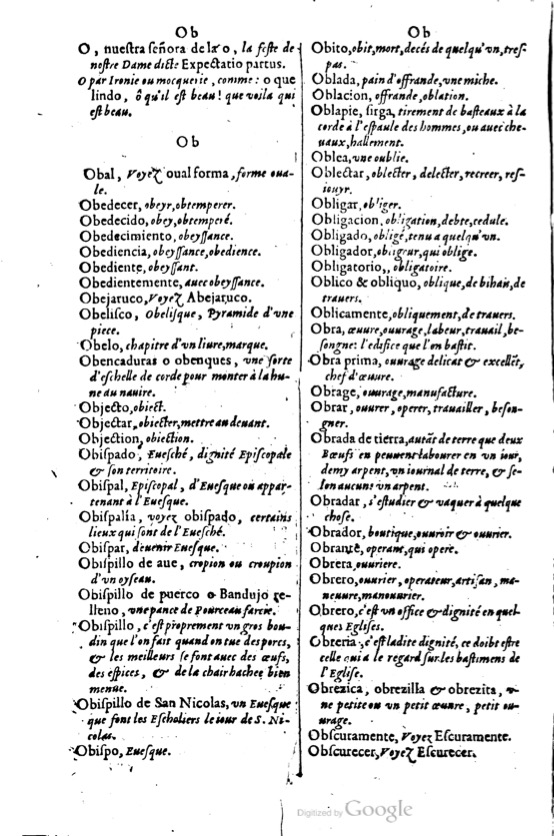 Ob
O, nuestra señora de la o, la feste de
nostre Dame dicte Expectatio partus.
O par Ironie ou mocquerie, comme: o que
lindo, ô qu'il est beau! que voila qui
est beau.
Ob
Obal, Voyez oual forma, forme oua-
le.
Obedecer, obeyr, obtemperer.
Obedecido, obey, obtemperé.
Obedecimiento, obeyssance.
Obediencia, obeyssance, obedience.
Obediente, obeyssant.
Obedientemente, auec obeyssance.
Obejaruco, Voyez Abejaruco.
Obelisco, Obelisque, Pyramide d'vne
piece.
Obelo, chapitre d'vn liure, marque.
Obencaduras o obenques, vne sorte
d'eschelle de corde pour monter à la hu-
ne du nauire.
Objecto, obiect.
Objectar, obiecter, mettre au deuant.
Objection, obiection.
Obispado, Euesché, dignité Episcopale
& son territoire.
Obispal, Episcopal, d'Euesque ou appar-
tenant à l'Euesque.
Obispalia, voyez obispado, certains
lieux qui sont de l'Euesché.
Obispar, deuenir Euesque.
Obispillo de aue, cropion ou croupion
d'vn oyseau.
Obispillo de puerco o Bandujo re-
lleno, vne pance de Pourceau farcie.
Obispillo, c'est proprement vn gros bou-
din que l'on fait quand on tue des porcs,
& les meilleurs se font auec des œufs,
des espices, & de la chair hachee bien
menue.
Obispillo de San Nicolas, vn Euesque
que font les Escholiers le iour de S. Ni-
colas.
Obispo, Euesque.
Ob
Obito, obit, mort, decés de quelqu'vn, tres-
pas.
Oblada, pain d'offrande, vne miche.
Oblacion, offrande, oblation.
Oblapie, sirga, tirement de basteaux à la
corde à l'espaule des hommes, ou auec che-
uaux, hallement.
Oblea, vne oublie.
Oblectar, oblecter, delecter, recreer, res-
iouyr.
Obligar, obliger.
Obligacion, obligation, debte, cedule.
Obligado, obligé, tenu a quelqu'vn.
Obligador, obligeur, qui oblige.
Obligatorio,, obligatoire.
Oblico & obliquo, oblique, de bihais, de
trauers.
Oblicamente, obliquement, de trauers.
Obra, œuure, ouurage, labeur, trauail, be-
songne: l'edifice que l'on bastit.
Obra prima, ouurage delicat & excellẽt,
chef d'œuure.
Obrage, ouurage, manufacture.
Obrar, ouurer, operer, trauailler, beson-
gner.
Obrada de tierra, autãt de terre que deux
Bœufs en peuuent labourer en vn iour,
demy arpent, vn iournal de terre, & se-
lon aucuns vn arpent.
Obradar, s'estudier & vaquer à quelque
chose.
Obrador, boutique, ouuroir & ouurier.
Obrante, operant, qui opere.
Obrera, ouuriere.
Obrero, ouurier, operateur, artisan, ma-
neuure, manouurier.
Obrero, c'est vn office & dignité en quel-
ques Eglises.
Obreria, c'est ladite dignité, ce doibt estre
celle qui a le regard sur les bastimens de
l'Eglise.
Obrezica, obrezilla & obrezita, v-
ne petite ou vn petit œuure, petit ou-
urage.
Obscuramente, Voyez Escuramente.
Obscurecer, Voyez Escurecer.
Digitized by Google